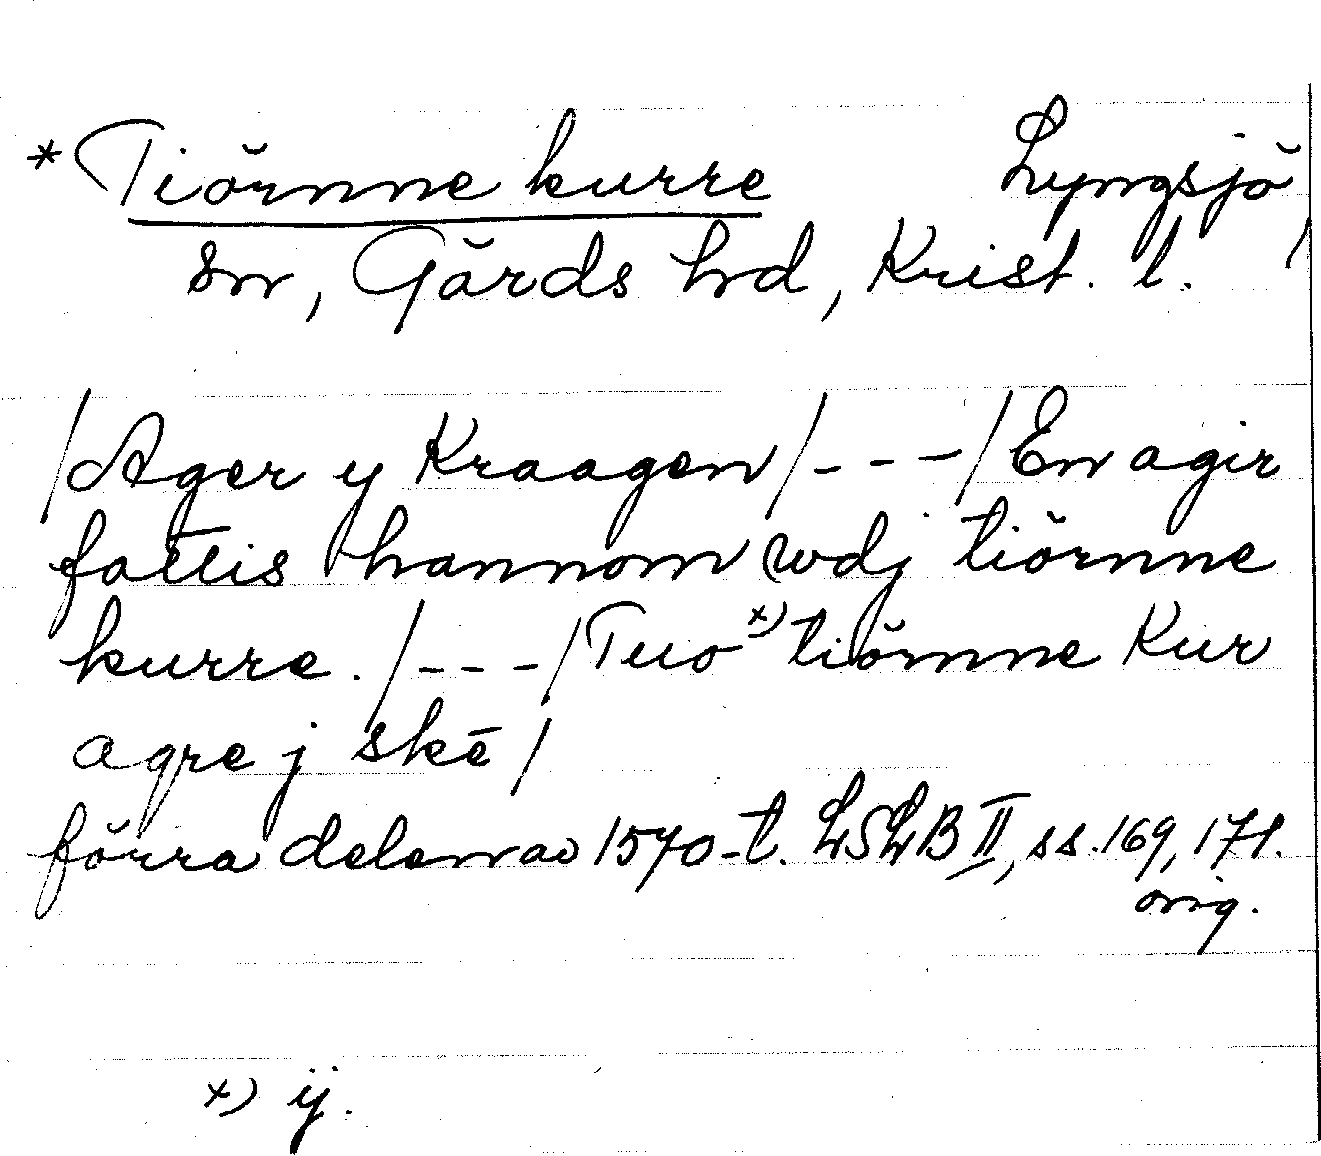 * Tiörnne kurre Lyngsjö
sn, Gärds hd, Krist. l.
/Ager y Kraagen/---/En agir
fattis hannom wdj tiörnne
kurre./---/Tuo x) tiörnne Kur
agre j skē/
förra delen av 1570-t. LSLB II, ss. 169, 171.
orig.
x) ij.